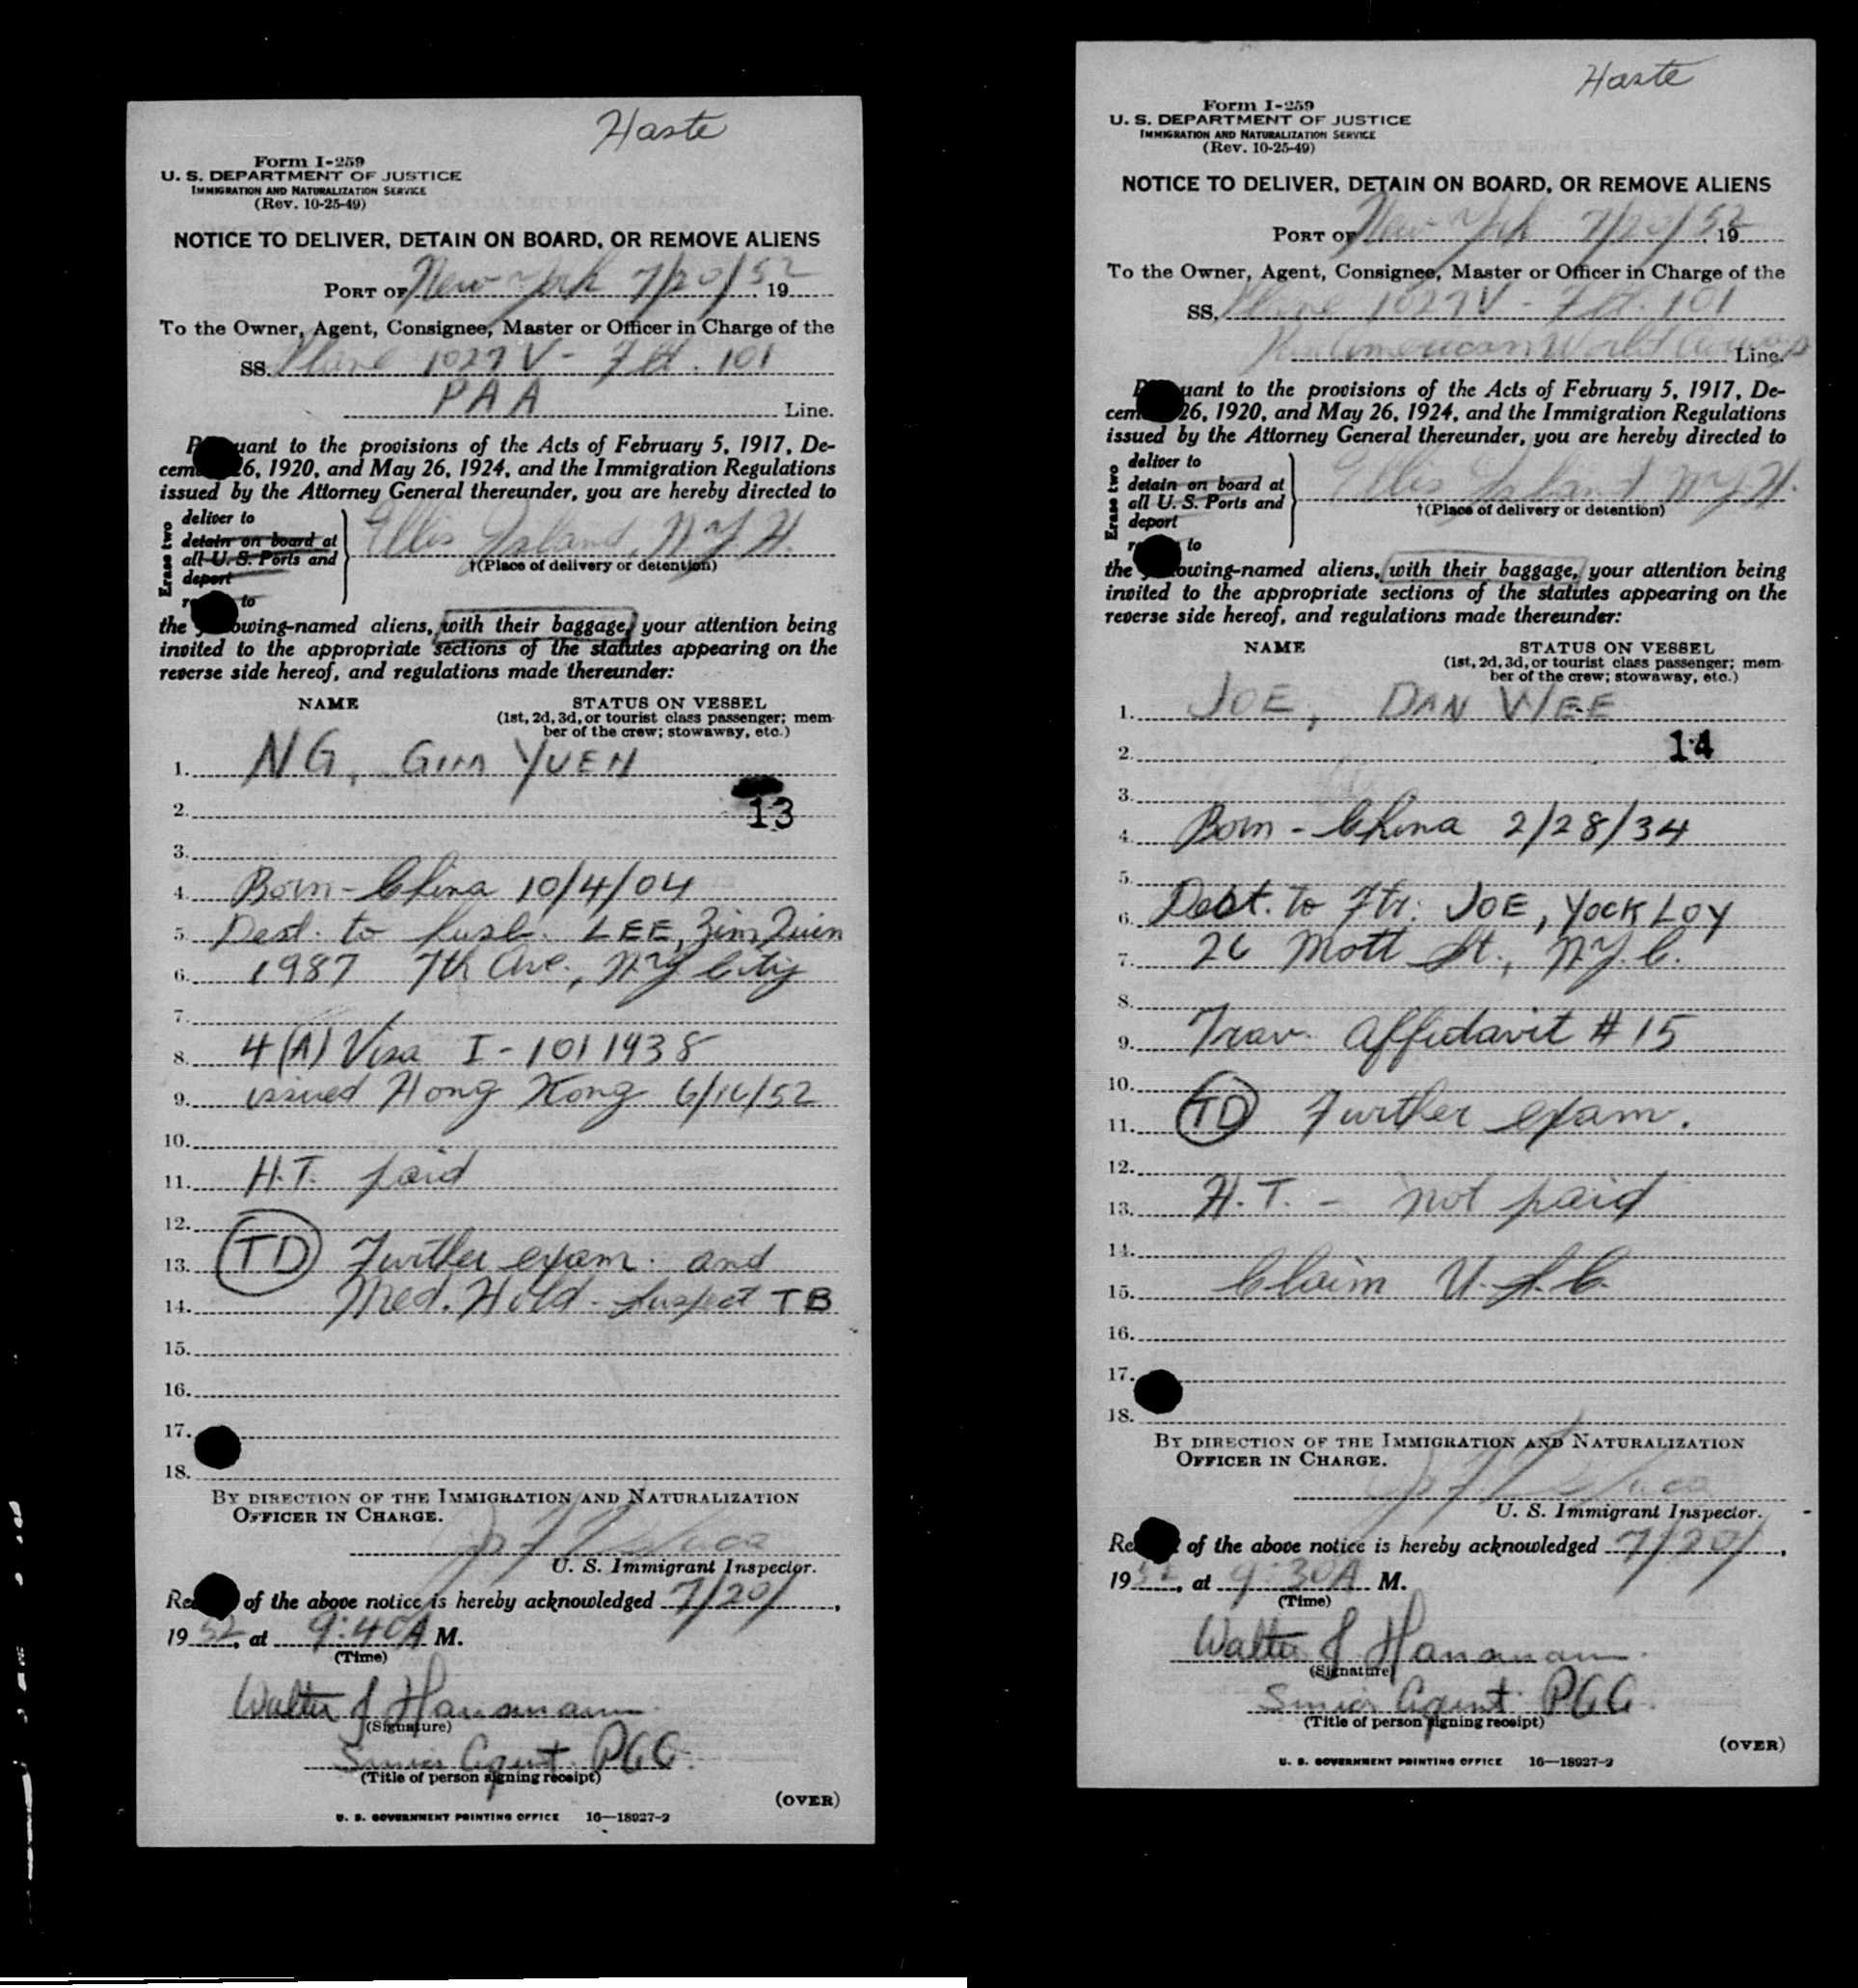 Haste
Form I-259
U. S. DEPARTMENT OF JUSTICE
IMMIGRATION AND NATURALIZATION SERVICE
(Rev. 10-25-49)
NOTICE TO DELIVER, DETAIN ON BOARD, OR REMOVE ALIENS
PORT OF New York 7/20/52, 19
To the Owner, Agent, Consignee, Master or Officer in Charge of the
SS. Plane 1027 V - Flt. 101
PAA Line.
uant to the provisions of the Acts of February 5, 1917, De-
cem 26, 1920, and May 26, 1924, and the Immigration Regulations
issued by the Attorney General thereunder, you are hereby directed to
Erase two
deliver to
detain on board at
all U. S. Ports and
deport
to
Ellis Island, NYH.
†(Place of delivery or detention)
the owing-named aliens, with their baggage, your attention being
invited to the appropriate sections of the statutes appearing on the
reverse side hereof, and regulations made thereunder:
NAME STATUS ON VESSEL
(1st, 2d, 3d, or tourist class passenger; mem-
ber of the crew; stowaway, etc.)
1. NG, GIM YUEN
2. 13
3.
4. Born - China 10/4/04
5. Dest. to husb. LEE,
6. 1987 7th Ave., NY City
7.
8. 4(A) Visa I-1011938
9. issued Hong Kong 6/16/52
10.
11. H.T. paid
12.
13. TD Further exam. and
14. Med. Hold - suspect TB
15.
16.
17.
18.
BY DIRECTION OF THE IMMIGRATION AND NATURALIZATION
OFFICER IN CHARGE.
U. S. Immigrant Inspector.
Re of the above notice is hereby acknowledged 7/20/,
1952, at 9:40A M.
(Time)
Walter J Hanamann
(Signature)
Senior Agent
(Title of person signing receipt)
(OVER)
U. S. GOVERNMENT PRINTING OFFICE 16—18927-2
Haste
Form I-259
U. S. DEPARTMENT OF JUSTICE
IMMIGRATION AND NATURALIZATION SERVICE
(Rev. 10-25-49)
NOTICE TO DELIVER, DETAIN ON BOARD, OR REMOVE ALIENS
PORT OF New York 7/20/52, 19
To the Owner, Agent, Consignee, Master or Officer in Charge of the
SS. Plane 1027V - Flt. 101
Pan American World Airways Line.
uant to the provisions of the Acts of February 5, 1917, De-
cem 26, 1920, and May 26, 1924, and the Immigration Regulations
issued by the Attorney General thereunder, you are hereby directed to
Erase two
deliver to
detain on board at
all U. S. Ports and
deport
to
Ellis Island NYH.
†(Place of delivery or detention)
the owing-named aliens, with their baggage, your attention being
invited to the appropriate sections of the statutes appearing on the
reverse side hereof, and regulations made thereunder:
NAME STATUS ON VESSEL
(1st, 2d, 3d, or tourist class passenger; mem-
ber of the crew; stowaway, etc.)
1. JOE, DAN WEE
2. 14
3.
4. Born - China 2/28/34
5.
6. Dest. to Ftr: JOE, YOCK LOY
7. 26 Mott St., N.Y.C.
8.
9. Trav. Affidavit # 15
10.
11. TD Further exam.
12.
13. H.T. - not paid
14.
15. Claim U.S.C.
16.
17.
18.
BY DIRECTION OF THE IMMIGRATION AND NATURALIZATION
OFFICER IN CHARGE.
U. S. Immigrant Inspector.
Re of the above notice is hereby acknowledged 7/20/,
1952, at 9:30A M.
(Time)
Walter J Hanamann
(Signature)
Senior Agent
(Title of person signing receipt)
(OVER)
U. S. GOVERNMENT PRINTING OFFICE 16—18927-2